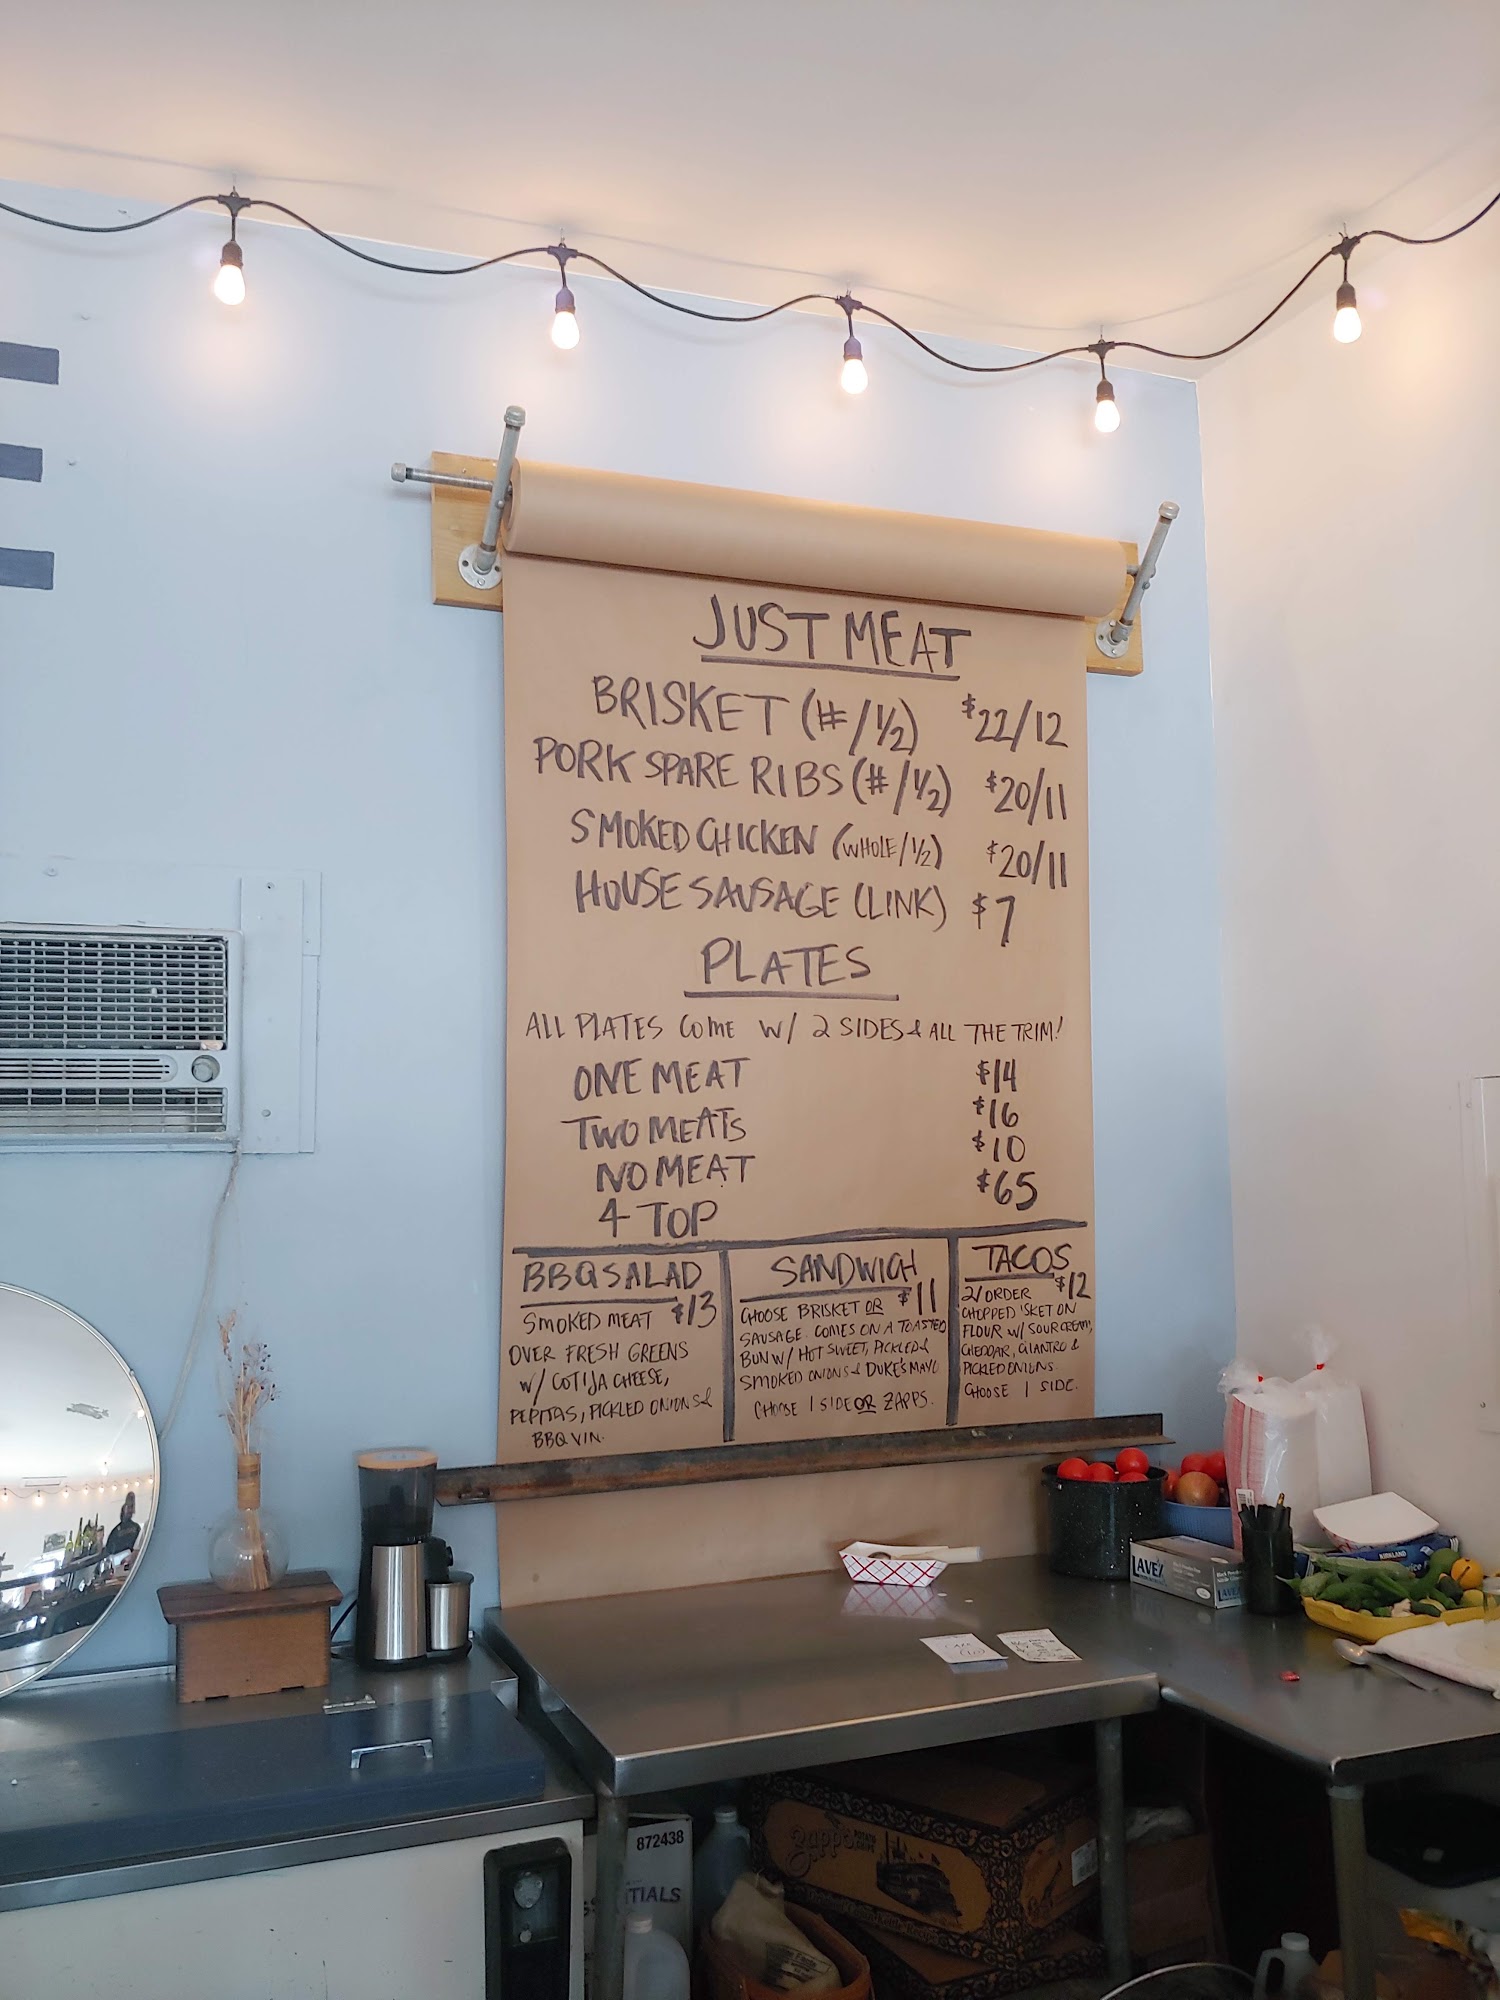 JUST MEAT
BRISKET (#/½) $22/12
PORK SPARE RIBS (#/½) $20/11
SMOKED CHICKEN (WHOLE/½) $20/11
HOUSE SAUSAGE (LINK) $7
PLATES
ALL PLATES COME W/ 2 SIDES & ALL THE TRIM!
ONE MEAT $14
TWO MEATS $16
NO MEAT $10
4 TOP $65
BBQ SALAD
SMOKED MEAT $13
OVER FRESH GREENS
W/ COTIJA CHEESE,
PEPITAS, PICKLED ONIONS &
BBQ VIN.
SANDWICH
CHOOSE BRISKET OR $11
SAUSAGE. COMES ON A TOASTED
BUN W/ HOT SWEET, PICKLED &
SMOKED ONIONS & DUKE'S MAYO
CHOOSE 1 SIDE OR ZAPPS.
TACOS
2/ORDER $12
CHOPPED 'SKET ON
FLOUR W/ SOUR CREAM,
CHEDDAR, CILANTRO &
PICKLED ONIONS.
CHOOSE 1 SIDE.
LAVEX
LAVEX
KIRKLAND
872438
TIALS
Zapp's